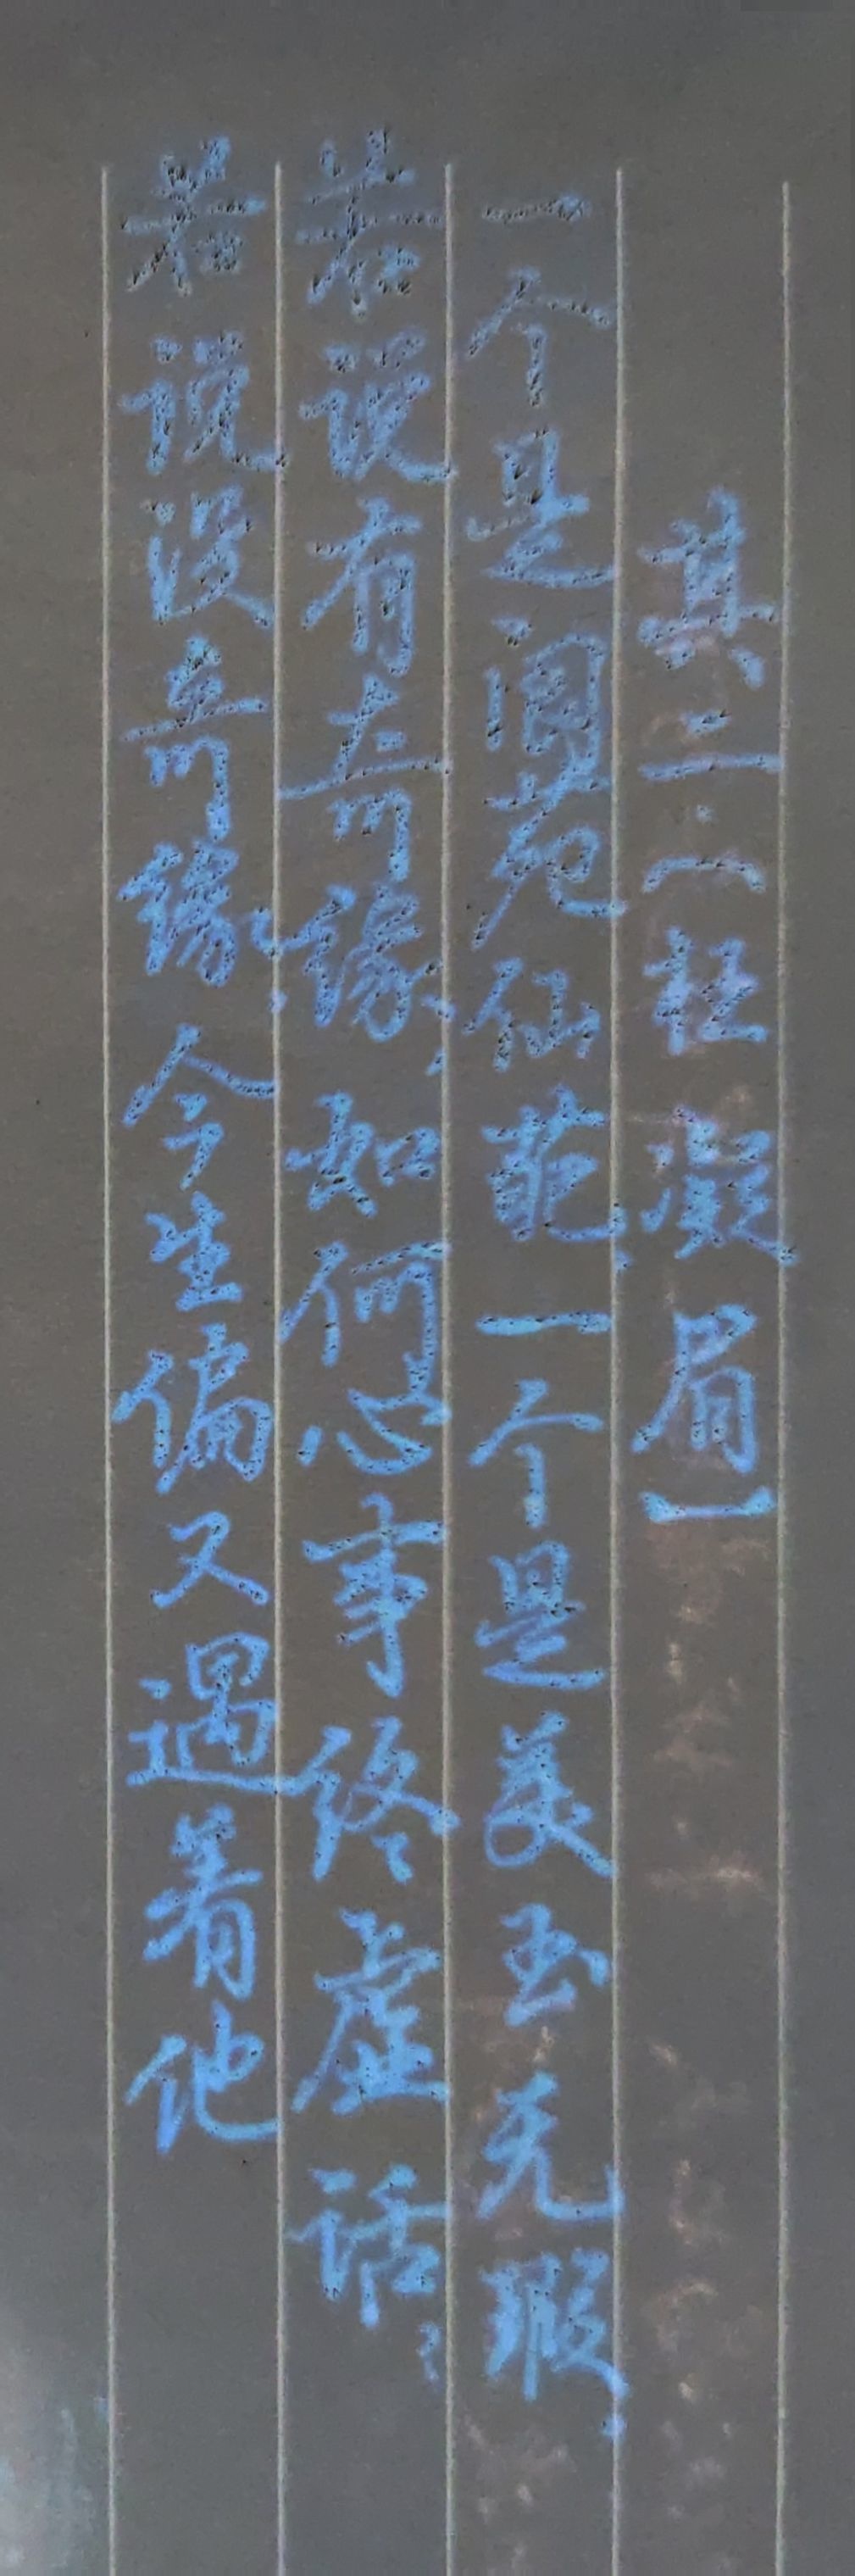 其二·[枉凝眉]
一个是阆苑仙葩,一个是美玉无瑕。
若说有奇缘,如何心事终虚话;
若说没奇缘,今生偏又遇着他